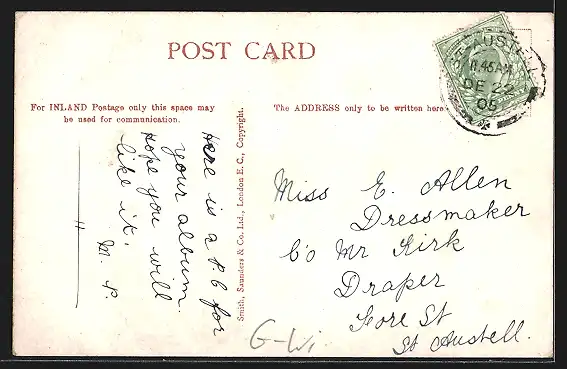 POST CARD
For INLAND Postage only this space may
be used for communication.
The ADDRESS only to be written here
ST AUSTELL
11.45 AM
DE 22
05
Here is a P.C for
your album.
Hope you will
like it.
M. P.
Smith, Saunders & Co. Ltd., London E.C., Copyright.
Miss E. Allen
Dressmaker
C/o Mr Kirk
Draper
Fore St
St Austell.
G-Wi.